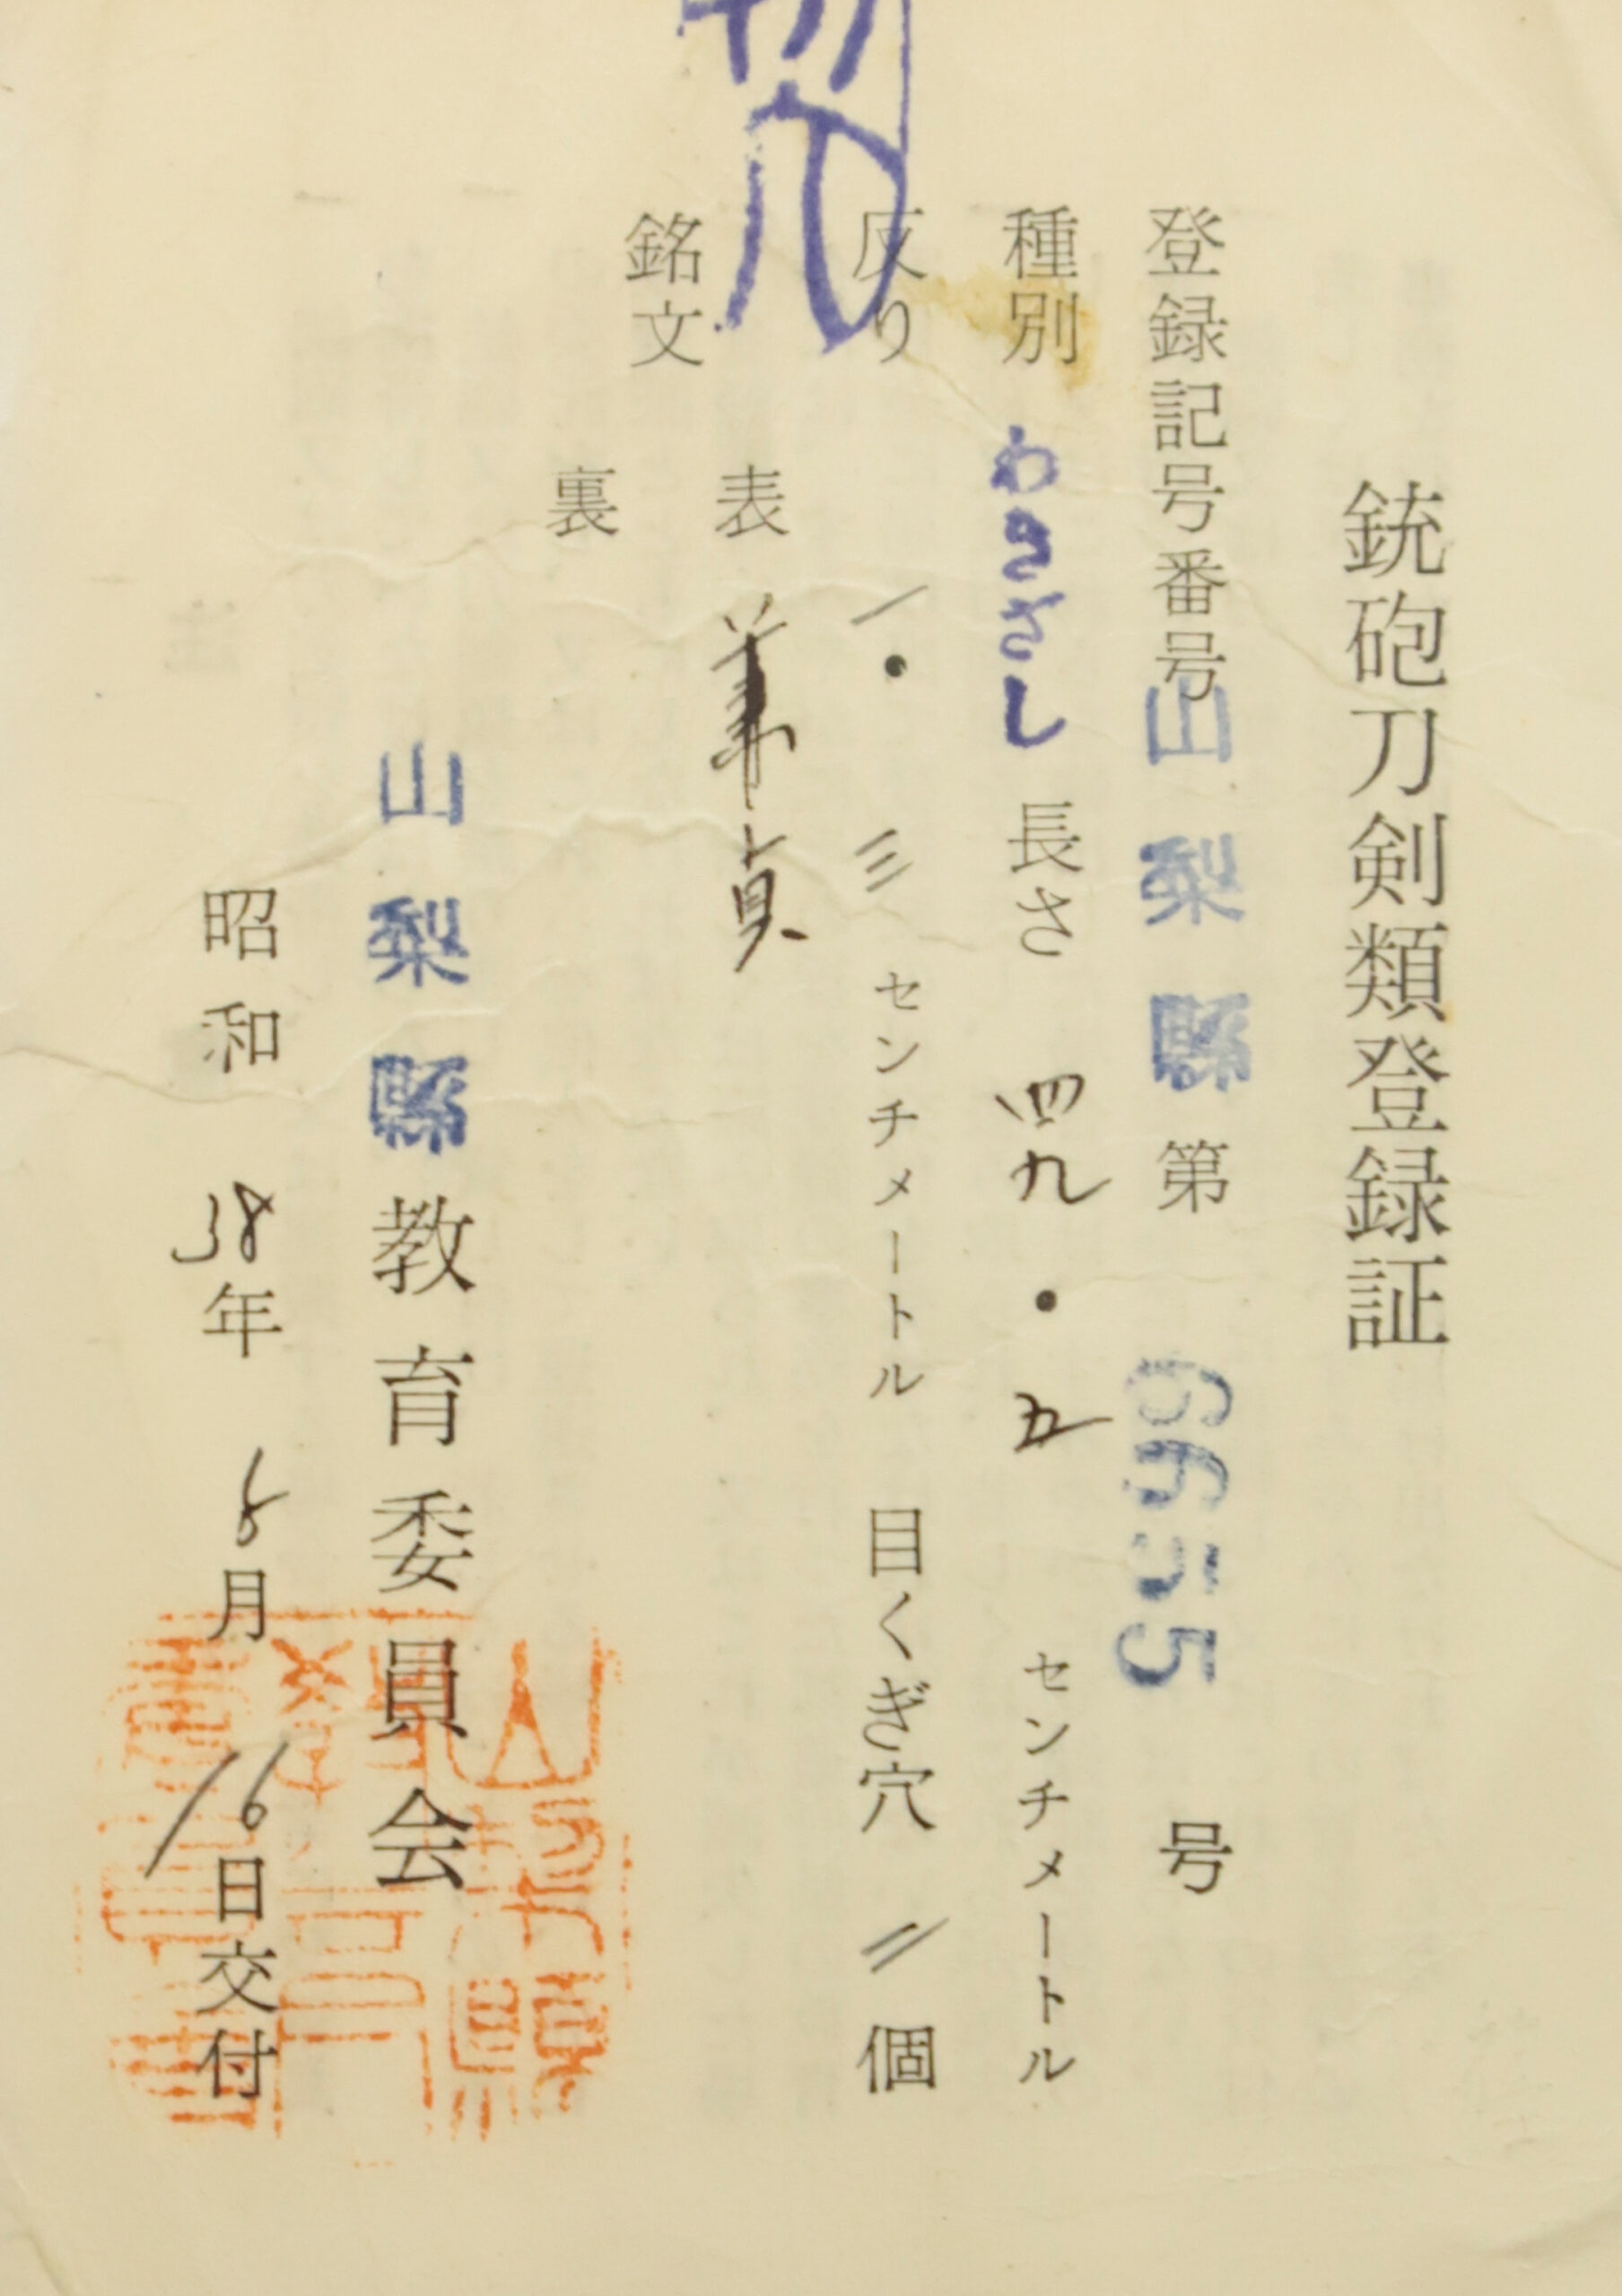 銃砲刀剣類登録証
登録記号番号 山梨縣 第 6655 号
種別 わきざし 長さ 四九・五 センチメートル
反り 一・三 センチメートル 目くぎ穴 二 個
銘文
表 兼貞
裏
山梨縣教育委員会
昭和 38年 6月 16日交付